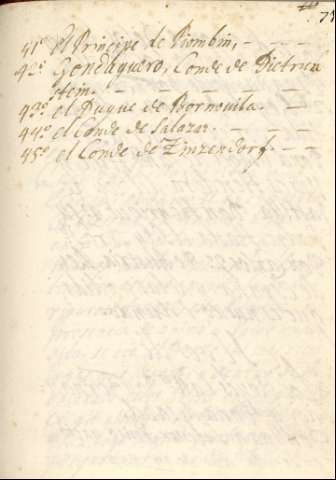 73
41º el Principe de Piombin, - - - -
42º Gundaquero, Conde de Dietrien
stein. - - - - - -
43º el Duque de Bornovila. - -
44º el Conde de Salazar. - - - -
45º el Conde de Zinzendorf. - -